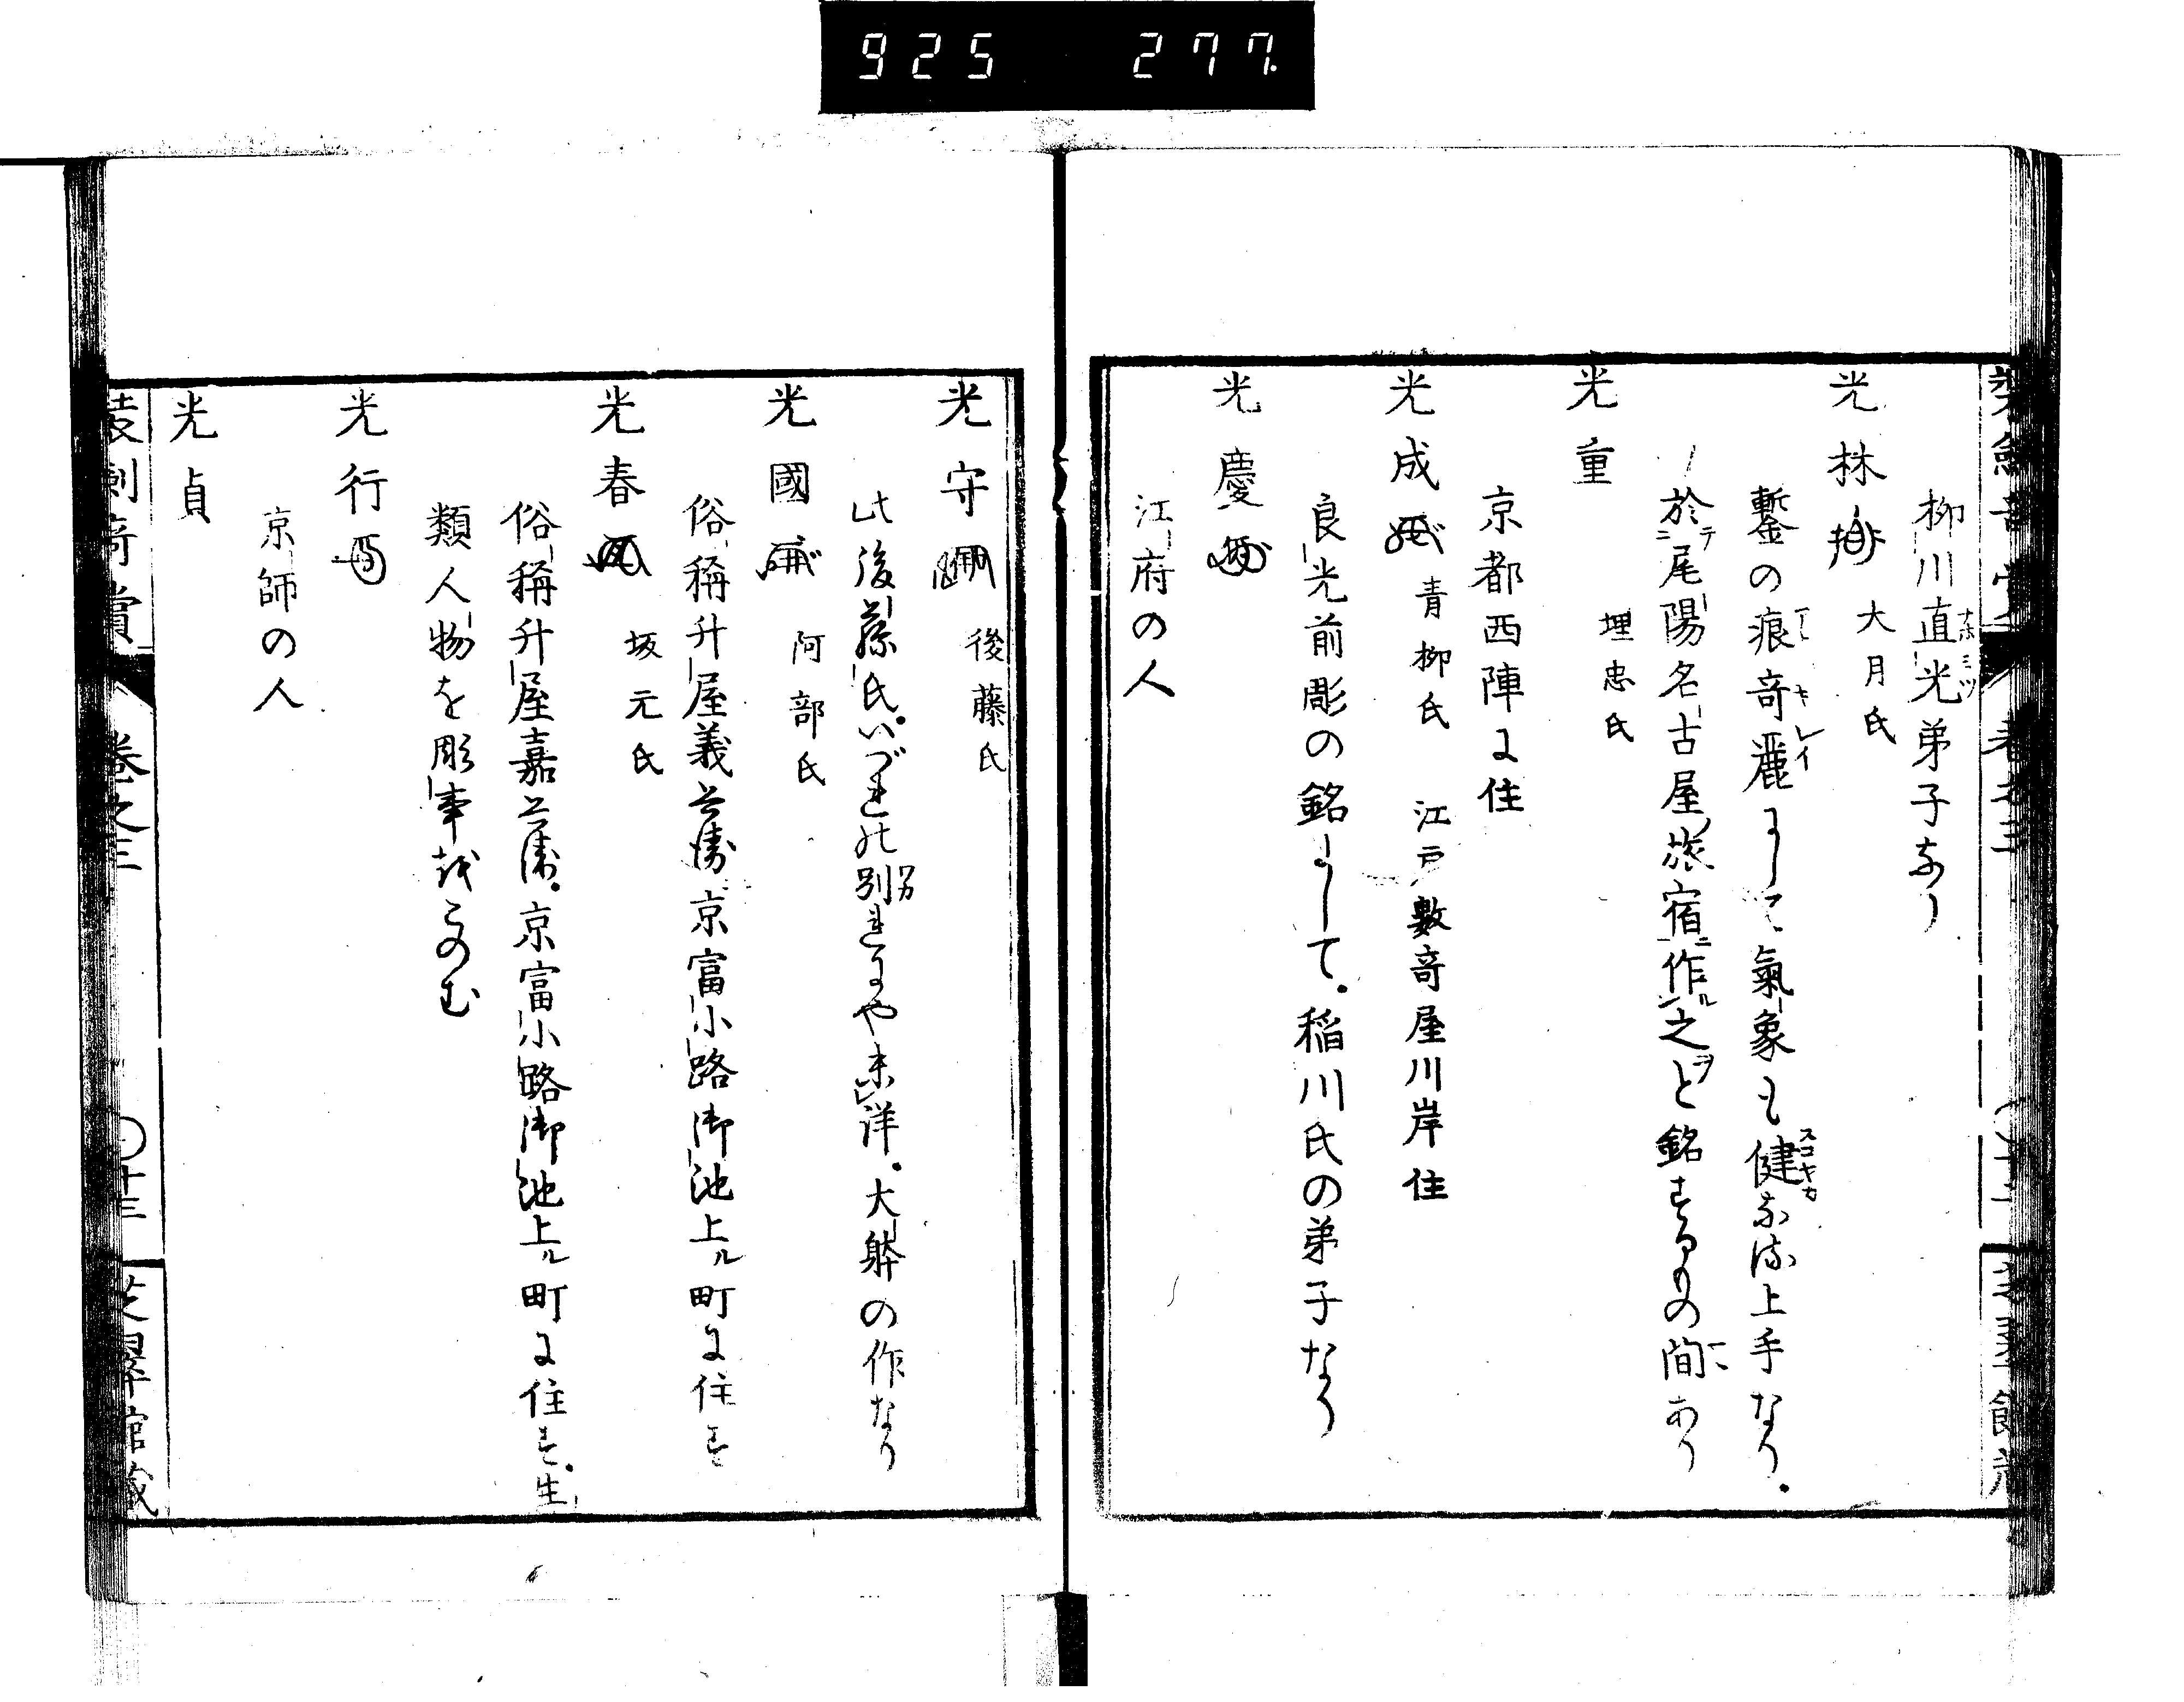 925 277
柳川直光弟子なり
ナホミツ
光林 大月氏
鏨の痕奇麗にして氣象も健なる上手なり.
アト キレイ スコヤカ
於テ尾陽名古屋ノ旅宿ニ作ル之ヲと銘するもの間あり
光重 埋忠氏
京都西陣に住
光成 青柳氏 江戸數奇屋川岸住
良光前彫の銘よして.稲川氏の弟子なり
光慶
江府の人
光守 後藤氏
此後藤氏.いづれの別れにや未詳.大躰の作なり
ワカ
光國 阿部氏
俗稱升屋義兵衛京富小路御池上ル町に住す
光春 坂元氏
俗稱升屋嘉兵衛.京富小路御池上ル町に住す.生
類人物を彫事をこのむ
光行
京師の人
光貞
装劍奇賞 卷之三 〇十三 芝翠館藏